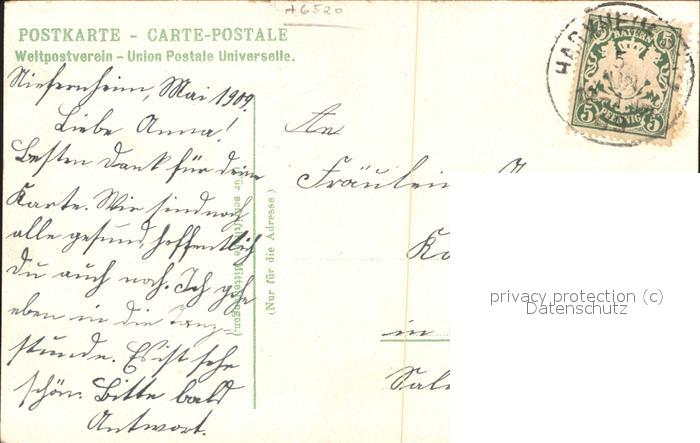 A6520
POSTKARTE - CARTE-POSTALE
Weltpostverein - Union Postale Universelle.
Niefernheim, Mai 1909.
Liebe Anna!
Besten Dank für deine
Karte. Wir sind noch
alle gesund, hoffentlich
Du auch noch. Ich gehe
eben in die Tanz-
stunde. Es ist sehr
schön. Bitte bald
Antwort.
für schriftliche Mitteilungen.)
(Nur für die Adresse)
An
Fräulein
in
BAYERN
5 5
5 5
PFENNIG
privacy protection (c)
Datenschutz